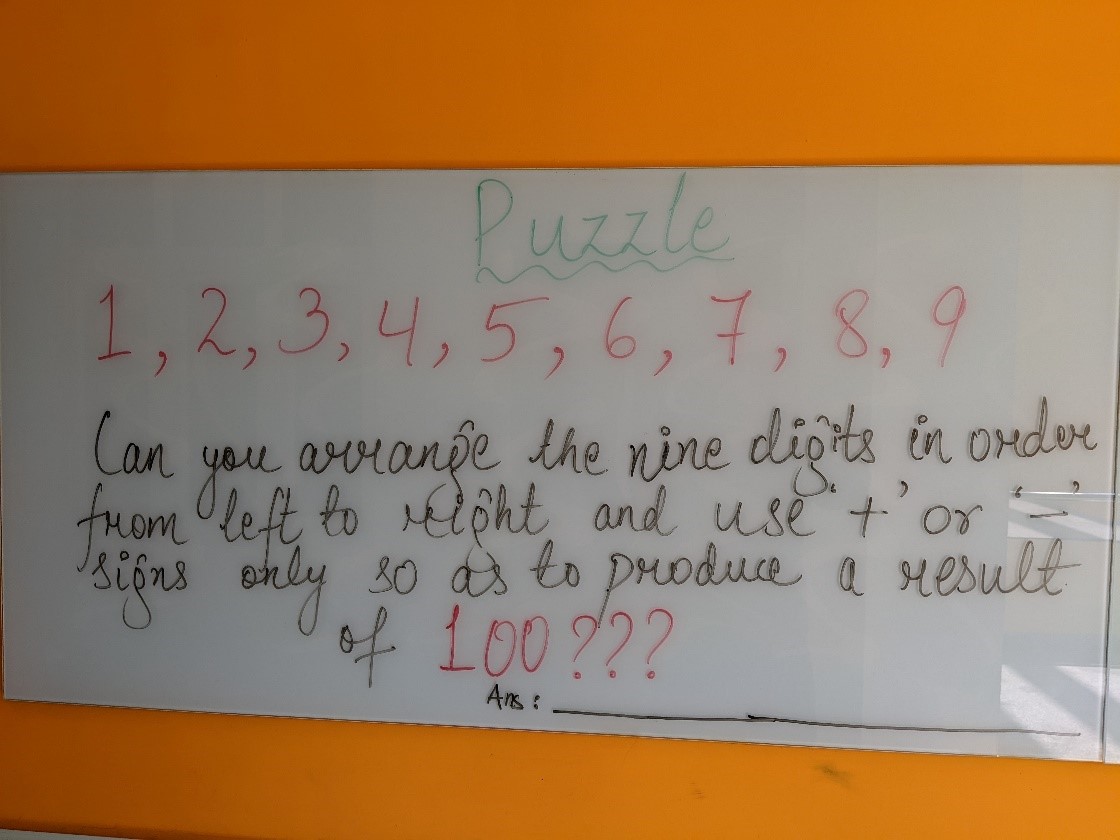 Puzzle
1, 2, 3, 4, 5, 6, 7, 8, 9
Can you arrange the nine digits in order
from left to right and use '+' or '-'
signs only so as to produce a result
of 100???
Ans: ____________